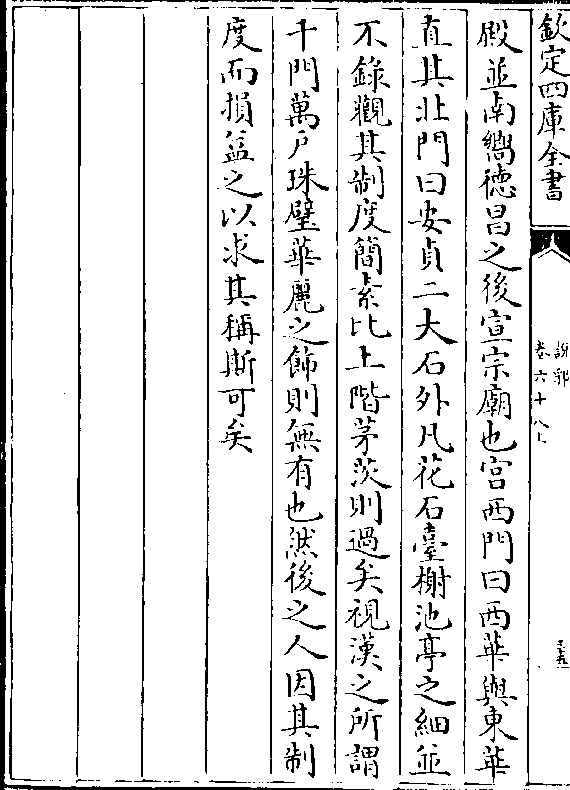 欽定四庫全書
說郛
卷六十八上
殿並南嚮德昌之後宣宗廟也宫西門曰西華與東華
直其北門曰安貞二大石外凡花石臺榭池亭之細並
不錄觀其制度簡素比土階茅茨則過矣視漢之所謂
千門萬户珠璧華麗之飾則無有也然後之人因其制
度而損益之以求其稱斯可矣